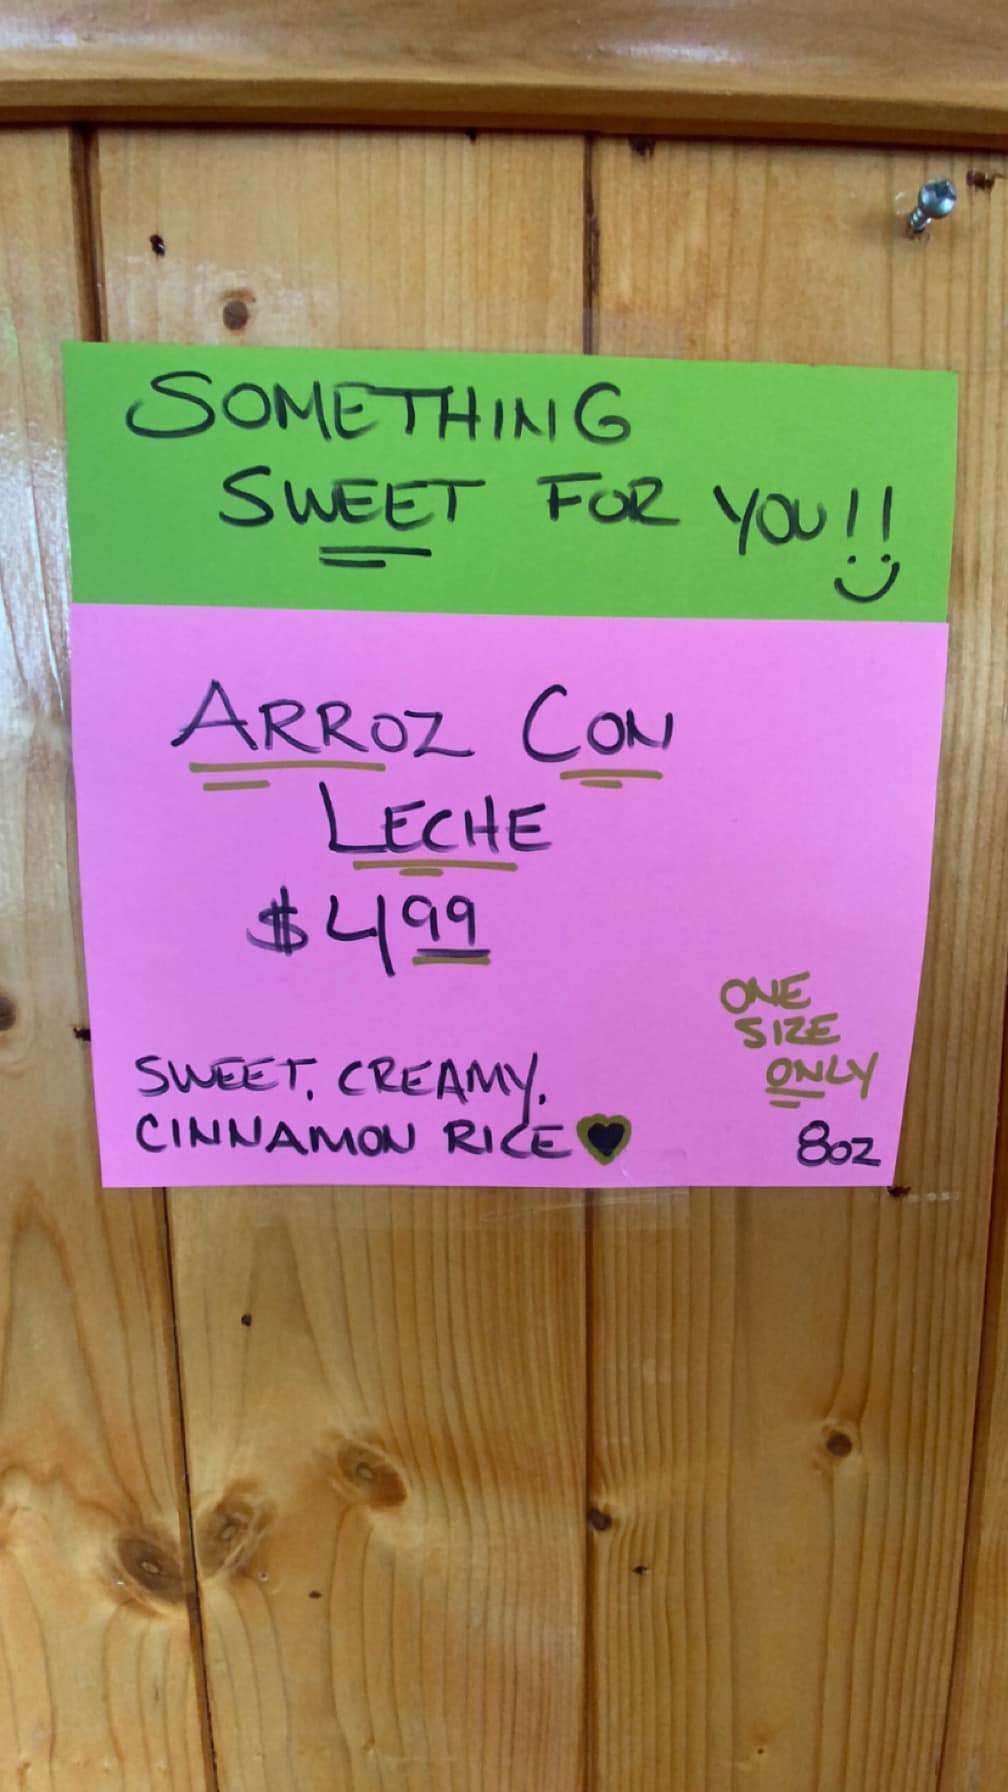 SOMETHING
SWEET FOR YOU!!
ARROZ CON
LECHE
$499
SWEET, CREAMY,
CINNAMON RICE
ONE
SIZE
ONLY
8oz